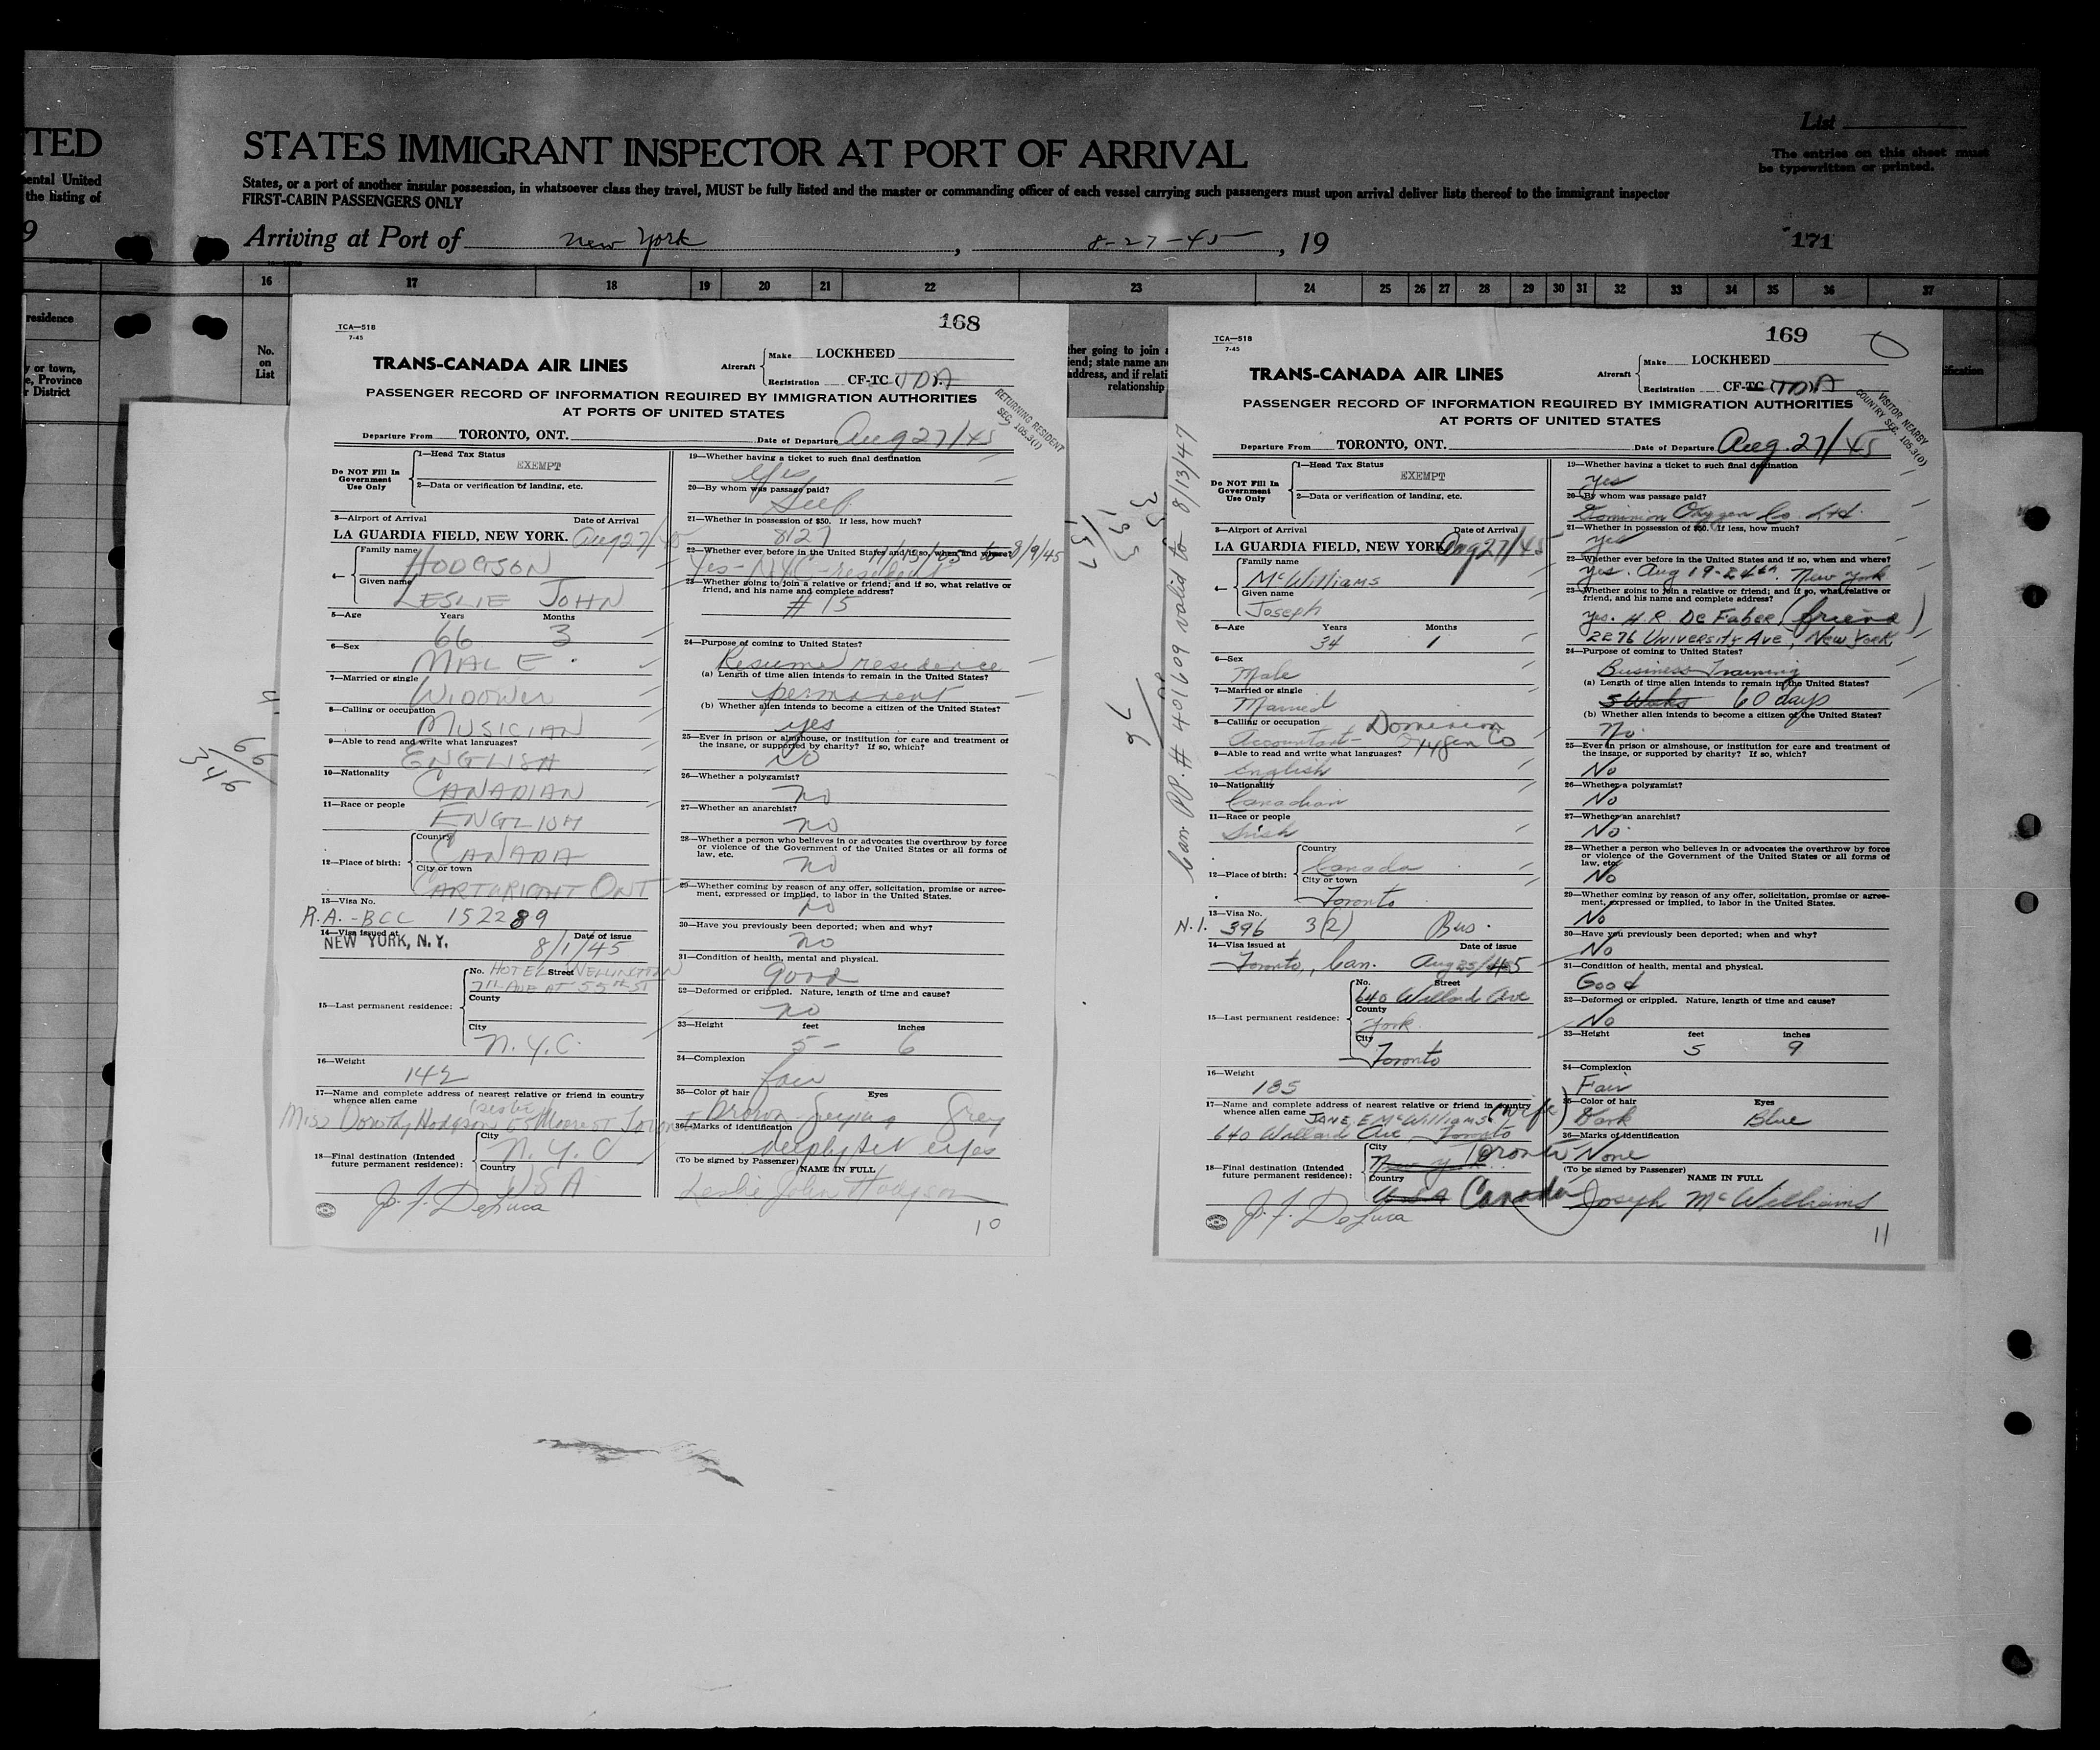 TED
ental United
the listing of
9
residence
y or town,
e, Province
r District
STATES IMMIGRANT INSPECTOR AT PORT OF ARRIVAL
States, or a port of another insular possession, in whatsoever class they travel, MUST be fully listed and the master or commanding officer of each vessel carrying such passengers must upon arrival deliver lists thereof to the immigrant inspector
FIRST-CABIN PASSENGERS ONLY
List
The entries on this sheet must
be typewritten or printed.
Arriving at Port of New York, 8-27-45, 19
171
16 17 18 19 20 21 22 23 24 25 26 27 28 29 30 31 32 33 34 35 36 37
No.
on
List
ther going to join a
iend; state name an
address, and if relati
relationship
ification
TCA—518
7-45
168
TRANS-CANADA AIR LINES
Aircraft
Make LOCKHEED
Registration CF-TC
PASSENGER RECORD OF INFORMATION REQUIRED BY IMMIGRATION AUTHORITIES
AT PORTS OF UNITED STATES
RETURNING RESIDENT
SEC. 105.3(1)
Departure From TORONTO, ONT. Date of Departure Aug 27/45
Do NOT Fill In
Government
Use Only
1—Head Tax Status
EXEMPT
2—Data or verification of landing, etc.
3—Airport of Arrival Date of Arrival
LA GUARDIA FIELD, NEW YORK. Aug 27/45
4—
Family name HODGSON
Given name LESLIE JOHN
5—Age Years Months
66 3
6—Sex
MALE.
7—Married or single
WIDOWER
8—Calling or occupation
MUSICIAN
9—Able to read and write what languages?
ENGLISH
10—Nationality
CANADIAN
11—Race or people
ENGLISH
12—Place of birth:
Country
CANADA
City or town
CARTWRIGHT ONT
13—Visa No.
R.A.-BCC 152289
14—Visa issued at Date of issue
NEW YORK, N. Y. 8/1/45
15—Last permanent residence:
No. Street
HOTEL WELLINGTON
7TH AVE AT 55TH ST
County
City
N.Y.C.
16—Weight
142
17—Name and complete address of nearest relative or friend in country
whence alien came
(sister)
Miss Dorothy Hodgson 65 Toronto
18—Final destination (Intended
future permanent residence):
City
N.Y.C
Country
USA
J. J. DeLuca
19—Whether having a ticket to such final destination
yes
20—By whom was passage paid?
Self
21—Whether in possession of $50. If less, how much?
22—Whether ever before in the United States and if so, when and where?
8/9/45
Yes - NYC - resident
23—Whether going to join a relative or friend; and if so, what relative or
friend, and his name and complete address?
# 15
24—Purpose of coming to United States?
Resume residence
(a) Length of time alien intends to remain in the United States?
permanent
(b) Whether alien intends to become a citizen of the United States?
yes
25—Ever in prison or almshouse, or institution for care and treatment of
the insane, or supported by charity? If so, which?
NO
26—Whether a polygamist?
no
27—Whether an anarchist?
no
28—Whether a person who believes in or advocates the overthrow by force
or violence of the Government of the United States or all forms of
law, etc.
no
29—Whether coming by reason of any offer, solicitation, promise or agree-
ment, expressed or implied, to labor in the United States.
no
30—Have you previously been deported; when and why?
no
31—Condition of health, mental and physical.
good
32—Deformed or crippled. Nature, length of time and cause?
no
33—Height feet inches
5- 6
34—Complexion
fair
35—Color of hair Eyes
brown - Grey
36—Marks of identification
deeply set eyes
(To be signed by Passenger)
NAME IN FULL
Leslie John Hodgson
10
TCA—518
7-45
169
TRANS-CANADA AIR LINES
Aircraft
Make LOCKHEED
Registration CF-TC
PASSENGER RECORD OF INFORMATION REQUIRED BY IMMIGRATION AUTHORITIES
AT PORTS OF UNITED STATES
VISITOR NEARBY
COUNTRY SEC. 105.3(0)
Can. PP. # 401609 valid to 8/13/47
Departure From TORONTO, ONT. Date of Departure Aug. 27/45
Do NOT Fill In
Government
Use Only
1—Head Tax Status
EXEMPT
2—Data or verification of landing, etc.
3—Airport of Arrival Date of Arrival
LA GUARDIA FIELD, NEW YORK Aug 27/45
4—
Family name
McWilliams
Given name
Joseph
5—Age Years Months
34 1
6—Sex
Male
7—Married or single
Married
8—Calling or occupation
Accountant - Dominion Oxygen Co
9—Able to read and write what languages?
English
10—Nationality
Canadian
11—Race or people
Irish
12—Place of birth:
Country
Canada
City or town
Toronto
13—Visa No.
N.I. 396 3(2) Bus.
14—Visa issued at Date of issue
Toronto, Can. Aug 25/45
15—Last permanent residence:
No. Street
640 Willard Ave
County
York
City
Toronto
16—Weight
185
17—Name and complete address of nearest relative or friend in country
whence alien came JANE E McWilliams (wife)
640 Willard Ave, Toronto
18—Final destination (Intended
future permanent residence):
City
New York Toronto
Country
USA Canada
J. J. DeLuca
19—Whether having a ticket to such final destination
Yes
20—By whom was passage paid?
Dominion Oxygen Co. Ltd.
21—Whether in possession of $50. If less, how much?
yes
22—Whether ever before in the United States and if so, when and where?
yes. Aug 19-24th. New York
23—Whether going to join a relative or friend; and if so, what relative or
friend, and his name and complete address?
yes. H. R. De Faber (friend)
2276 University Ave, New York
24—Purpose of coming to United States?
Business Training
(a) Length of time alien intends to remain in the United States?
5 Weeks 60 days
(b) Whether alien intends to become a citizen of the United States?
No.
25—Ever in prison or almshouse, or institution for care and treatment of
the insane, or supported by charity? If so, which?
No
26—Whether a polygamist?
No
27—Whether an anarchist?
No.
28—Whether a person who believes in or advocates the overthrow by force
or violence of the Government of the United States or all forms of
law, etc.
No
29—Whether coming by reason of any offer, solicitation, promise or agree-
ment, expressed or implied, to labor in the United States.
No
30—Have you previously been deported; when and why?
No
31—Condition of health, mental and physical.
Good
32—Deformed or crippled. Nature, length of time and cause?
No
33—Height feet inches
5 9
34—Complexion
Fair
35—Color of hair Eyes
Dark Blue
36—Marks of identification
None
(To be signed by Passenger)
NAME IN FULL
Joseph McWilliams
11